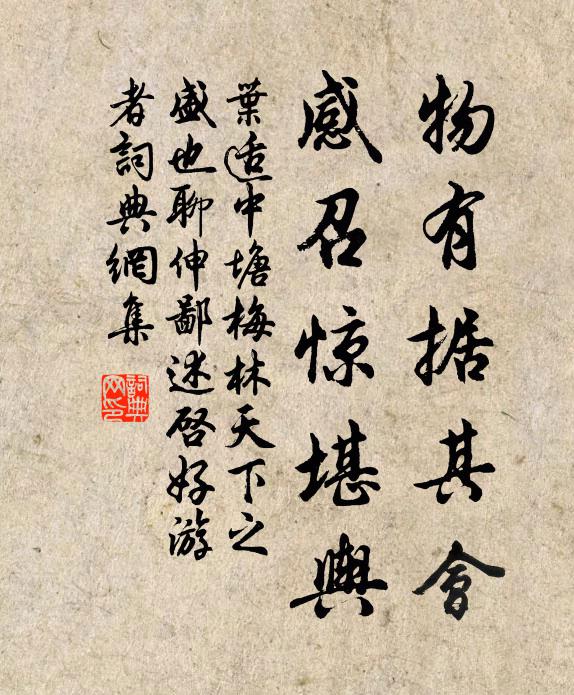 物有据其會
感召惊堪輿
葉适中塘梅林天下之
盛也聊伸鄙述啓好游
者詞典網集
詞典
网印